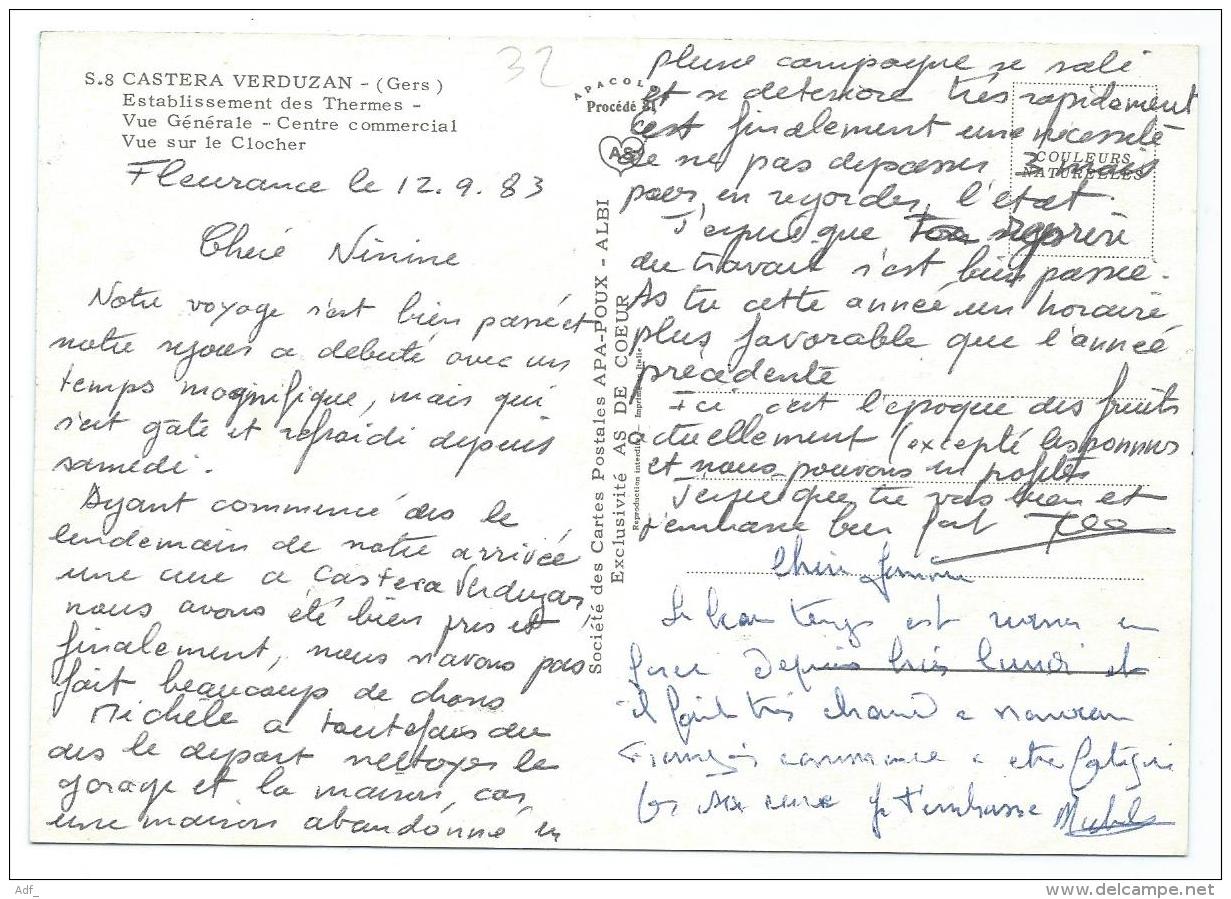 32
S.8 CASTERA VERDUZAN - (Gers)
Establissement des Thermes -
Vue Générale - Centre commercial
Vue sur le Clocher
Fleurance le 12.9.83
Cherè Ninine
Notre voyage s'est bien passé et
notre sejour a débuté avec un
temps magnifique, mais qui
s'est gâté et refroidi depuis
samedi.
Ayant commencé dès le
lendemain de notre arrivée
une cure à Castera Verduzan,
nous avons été bien pris et
finalement, nous n'avons pas
fait beaucoup de choses
Michèle a toutefois du
dès le depart nettoyer le
garage et la maison, car,
une maison abandonné en
APACOL
Procédé
AS
COULEURS
NATURELLES
Société des Cartes Postales APA-POUX - ALBI
Exclusivité AS DE COEUR
Reproduction interdite - Imprimé en Italie
pleine campagne se sali
et se deteriore très rapidament
c'est finalement une necessité
de ne pas depasser 3 mois
pour en regarder l'état.
J'espere que ta reprise
du travail s'est bien passée.
As tu cette année un horaire
plus favorable que l'année
précédente
Ici c'est l'époque des fruits
actuellement (excepté les pommes
et nous pouvons en profiter
J'espere que tu vas bien et
t'embrasse bien fort
Chère
Le beau temps est revenu en
force depuis hier lundi et
il fait très chaud a nouveau
François commence a etre fatigué
par sa cure je t'embrasse Michele
Adf_
delcampe.net